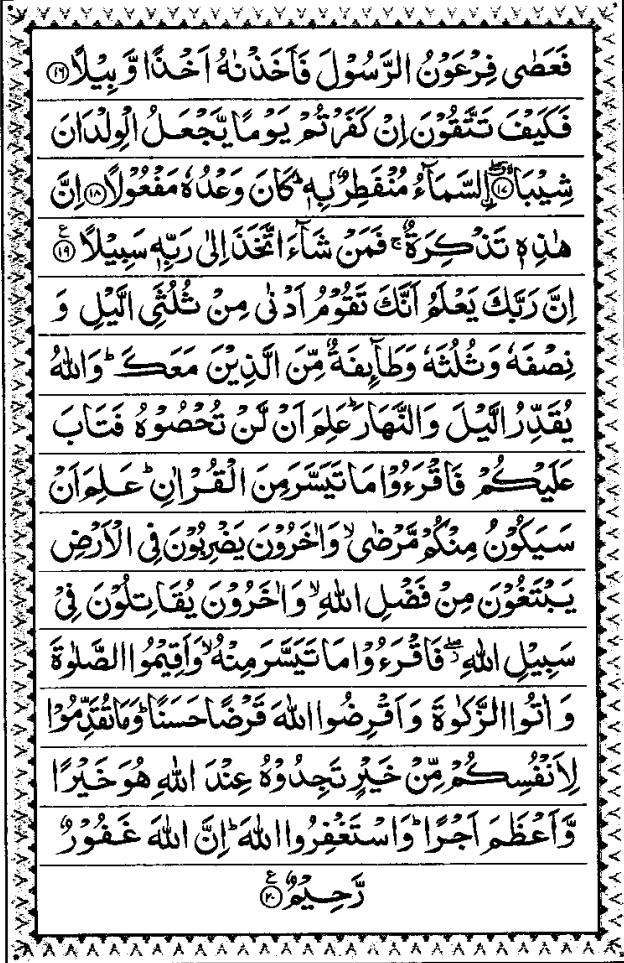 فَعَصٰى فِرْعَوْنُ الرَّسُوْلَ فَاَخَذْنٰهُ اَخْذًا وَّبِيْلًا ۝۱۶
فَكَيْفَ تَتَّقُوْنَ اِنْ كَفَرْتُمْ يَوْمًا يَّجْعَلُ الْوِلْدَانَ
شِيْبَا ۝۱۷ ۨالسَّمَآءُ مُنْفَطِرٌۢ بِهٖ ؕ كَانَ وَعْدُهٗ مَفْعُوْلًا ۝۱۸ اِنَّ
هٰذِهٖ تَذْكِرَةٌ ۚ فَمَنْ شَآءَ اتَّخَذَ اِلٰى رَبِّهٖ سَبِيْلًا ۝۱۹ ع
اِنَّ رَبَّكَ يَعْلَمُ اَنَّكَ تَقُوْمُ اَدْنٰى مِنْ ثُلُثَيِ الَّيْلِ وَ
نِصْفَهٗ وَثُلُثَهٗ وَطَآئِفَةٌ مِّنَ الَّذِيْنَ مَعَكَ ؕ وَاللّٰهُ
يُقَدِّرُ الَّيْلَ وَالنَّهَارَ ؕ عَلِمَ اَنْ لَّنْ تُحْصُوْهُ فَتَابَ
عَلَيْكُمْ فَاقْرَءُوْا مَا تَيَسَّرَ مِنَ الْقُرْاٰنِ ؕ عَلِمَ اَنْ
سَيَكُوْنُ مِنْكُمْ مَّرْضٰى ۙ وَاٰخَرُوْنَ يَضْرِبُوْنَ فِى الْاَرْضِ
يَبْتَغُوْنَ مِنْ فَضْلِ اللّٰهِ ۙ وَاٰخَرُوْنَ يُقَاتِلُوْنَ فِيْ
سَبِيْلِ اللّٰهِ ۖ فَاقْرَءُوْا مَا تَيَسَّرَ مِنْهُ ۙ وَاَقِيْمُوا الصَّلٰوةَ
وَاٰتُوا الزَّكٰوةَ وَاَقْرِضُوا اللّٰهَ قَرْضًا حَسَنًا ؕ وَمَا تُقَدِّمُوْا
لِاَنْفُسِكُمْ مِّنْ خَيْرٍ تَجِدُوْهُ عِنْدَ اللّٰهِ هُوَ خَيْرًا
وَّاَعْظَمَ اَجْرًا ؕ وَاسْتَغْفِرُوا اللّٰهَ ؕ اِنَّ اللّٰهَ غَفُوْرٌ
رَّحِيْمٌ ۝۲۰ ع